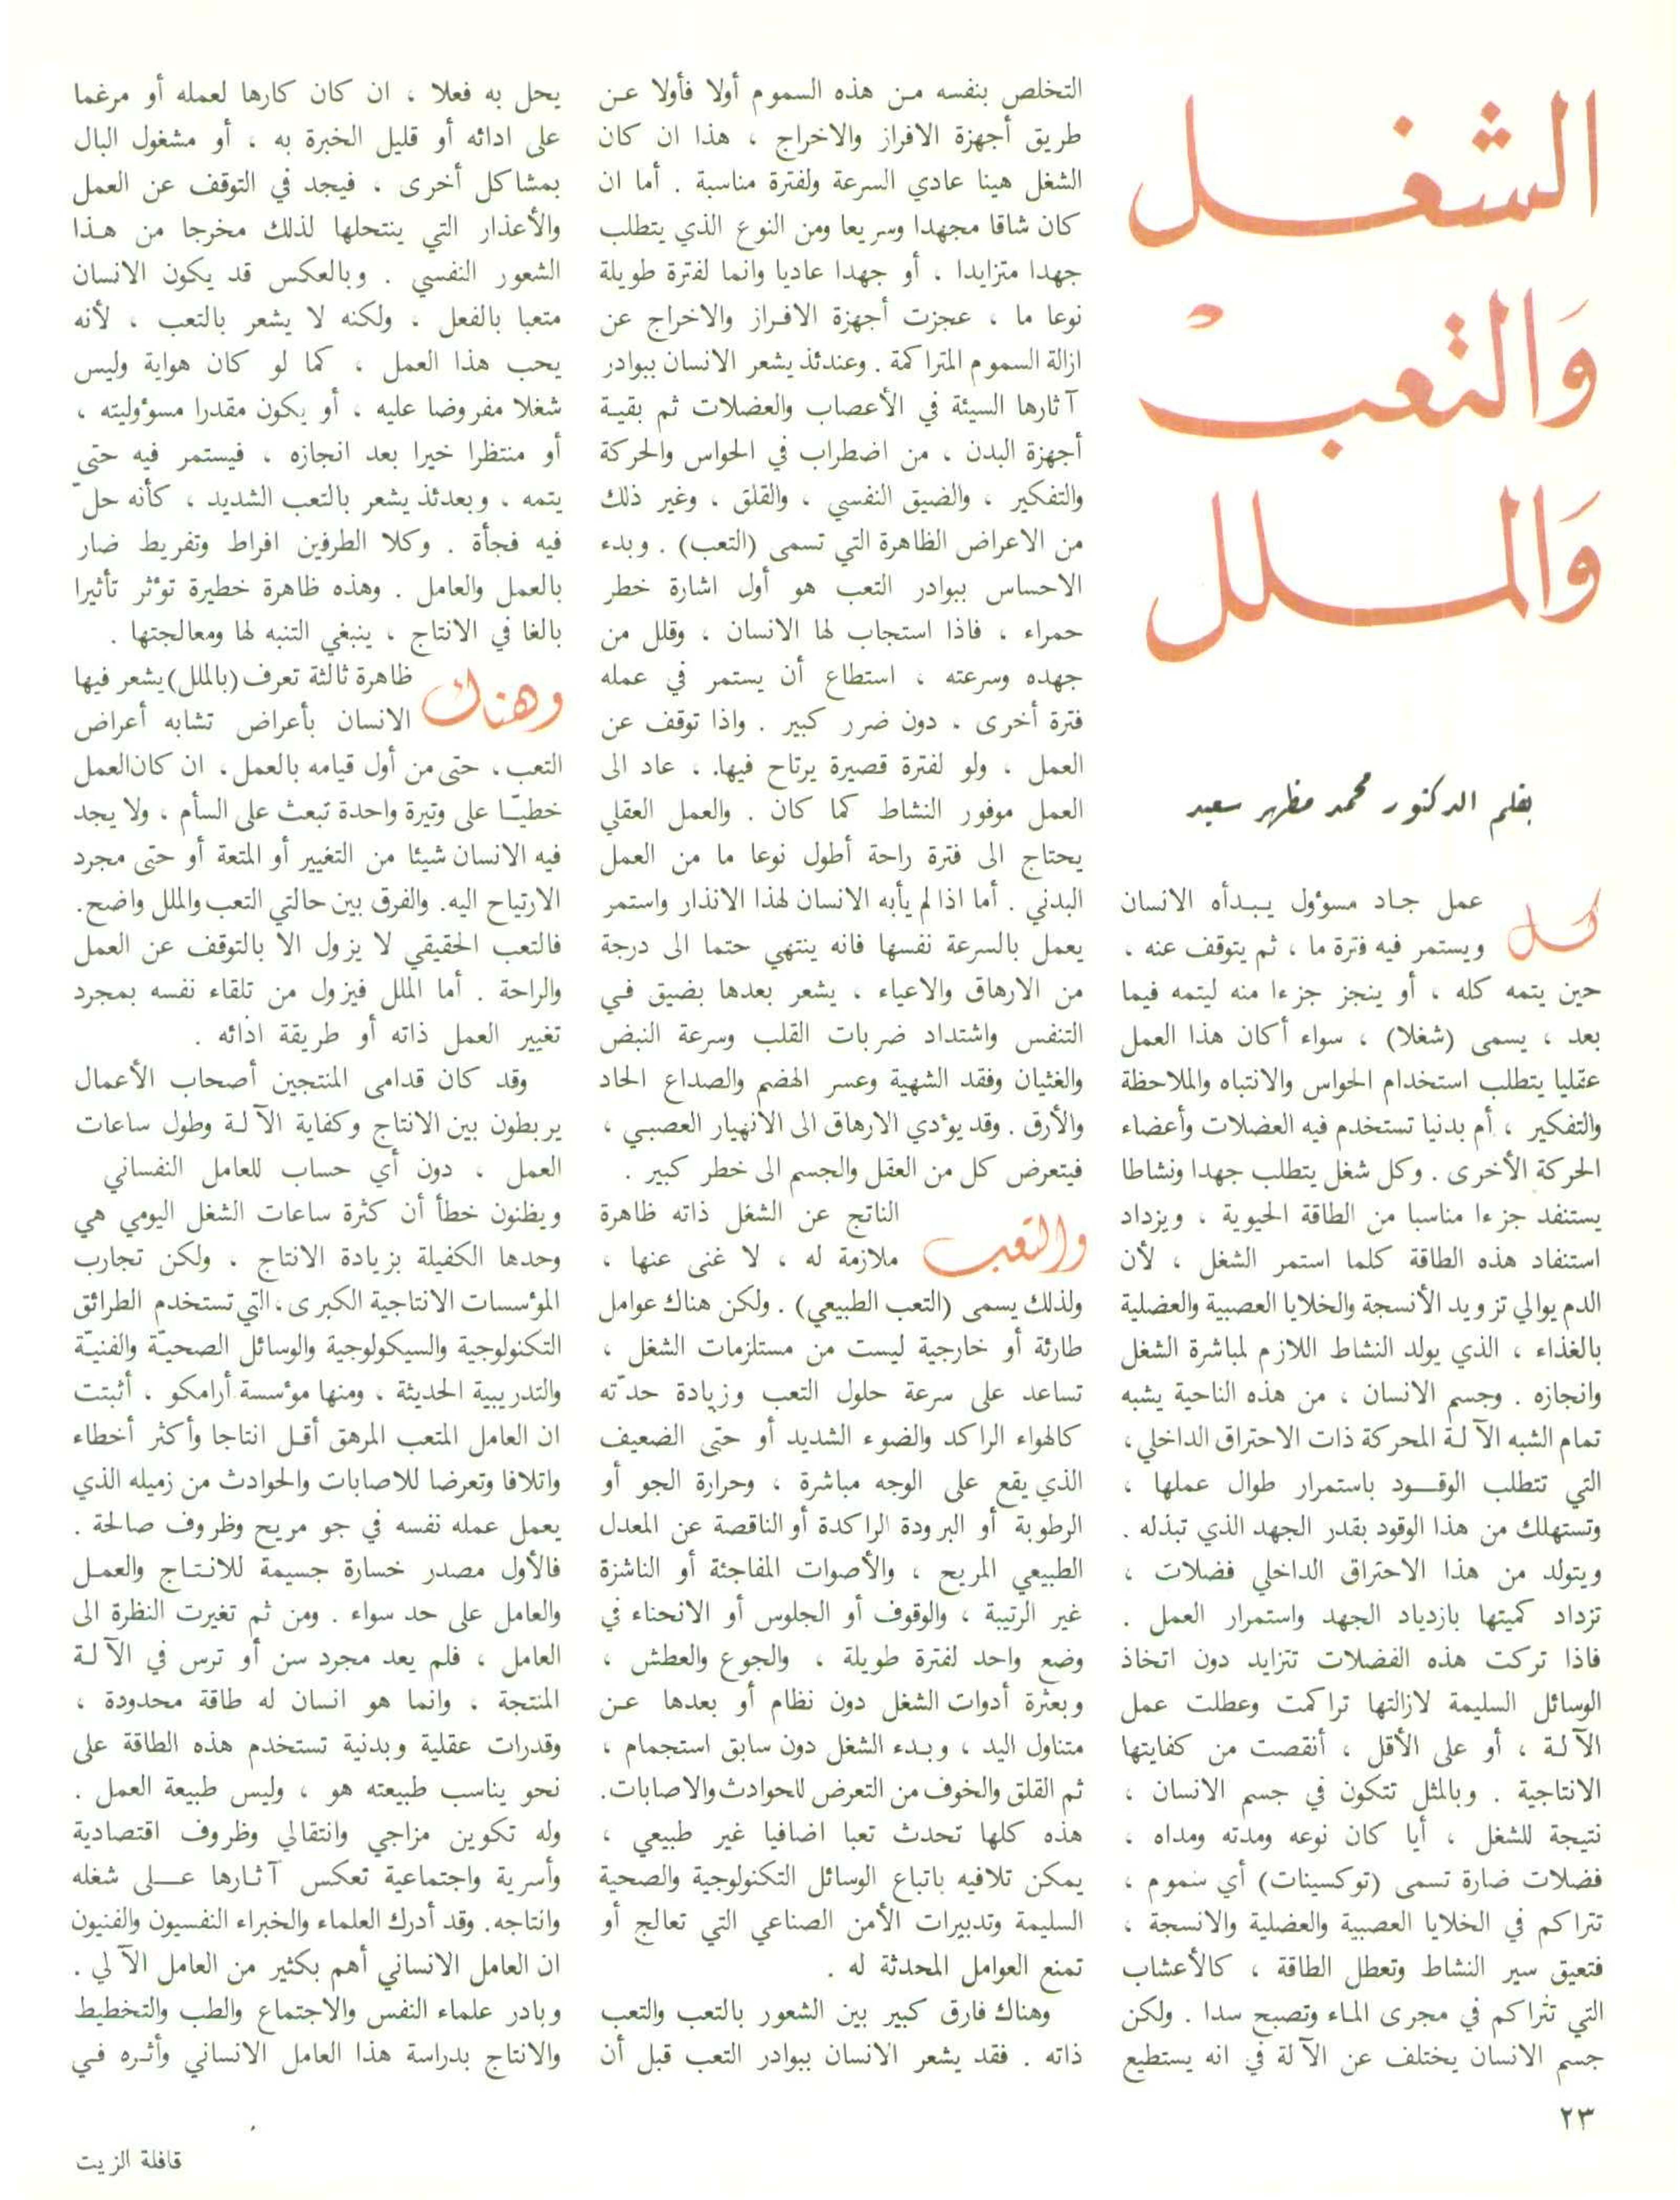 الشغل
وَالتعبْ
وَالملل
بقلم الدكتور محمد مظهر سعيد
كل عمل جاد مسؤول يبدأه الانسان
ويستمر فيه فترة ما ، ثم يتوقف عنه ،
حين يتمه كله ، أو ينجز جزءا منه ليتمه فيما
بعد ، يسمى (شغلا) ، سواء أكان هذا العمل
عقليا يتطلب استخدام الحواس والانتباه والملاحظة
والتفكير ، أم بدنيا تستخدم فيه العضلات وأعضاء
الحركة الأخرى . وكل شغل يتطلب جهدا ونشاطا
يستنفد جزءا مناسبا من الطاقة الحيوية ، ويزداد
استنفاد هذه الطاقة كلما استمر الشغل ، لأن
الدم يوالي تزويد الأنسجة والخلايا العصبية والعضلية
بالغذاء ، الذي يولد النشاط اللازم لمباشرة الشغل
وانجازه . وجسم الانسان ، من هذه الناحية يشبه
تمام الشبه الآلة المحركة ذات الاحتراق الداخلي ،
التي تتطلب الوقود باستمرار طوال عملها ،
وتستهلك من هذا الوقود بقدر الجهد الذي تبذله .
ويتولد من هذا الاحتراق الداخلي فضلات ،
تزداد كميتها بازدياد الجهد واستمرار العمل .
فاذا تركت هذه الفضلات تتزايد دون اتخاذ
الوسائل السليمة لازالتها تراكمت وعطلت عمل
الآلة ، أو على الأقل ، أنقصت من كفايتها
الانتاجية . وبالمثل تتكون في جسم الانسان ،
نتيجة للشغل ، أيا كان نوعه ومدته ومداه ،
فضلات ضارة تسمى (توكسينات) أي سموم ،
تتراكم في الخلايا العصبية والعضلية والانسجة ،
فتعيق سير النشاط وتعطل الطاقة ، كالأعشاب
التي تتراكم في مجرى الماء وتصبح سدا . ولكن
جسم الانسان يختلف عن الآلة في انه يستطيع
التخلص بنفسه من هذه السموم أولا فأولا عن
طريق أجهزة الافراز والاخراج ، هذا ان كان
الشغل هينا عادي السرعة ولفترة مناسبة . أما ان
كان شاقا مجهدا وسريعا ومن النوع الذي يتطلب
جهدا متزايدا ، أو جهدا عاديا وانما لفترة طويلة
نوعا ما ، عجزت أجهزة الافراز والاخراج عن
ازالة السموم المتراكمة . وعندئذ يشعر الانسان ببوادر
آثارها السيئة في الأعصاب والعضلات ثم بقية
أجهزة البدن ، من اضطراب في الحواس والحركة
والتفكير ، والضيق النفسي ، والقلق ، وغير ذلك
من الاعراض الظاهرة التي تسمى (التعب) . وبدء
الاحساس ببوادر التعب هو أول اشارة خطر
حمراء ، فاذا استجاب لها الانسان ، وقلل من
جهده وسرعته ، استطاع أن يستمر في عمله
فترة أخرى ، دون ضرر كبير . واذا توقف عن
العمل ، ولو لفترة قصيرة يرتاح فيها، ، عاد الى
العمل موفور النشاط كما كان . والعمل العقلي
يحتاج الى فترة راحة أطول نوعا ما من العمل
البدني . أما اذا لم يأبه الانسان لهذا الانذار واستمر
يعمل بالسرعة نفسها فانه ينتهي حتما الى درجة
من الارهاق والاعياء ، يشعر بعدها بضيق في
التنفس واشتداد ضربات القلب وسرعة النبض
والغثيان وفقد الشهية وعسر الهضم والصداع الحاد
والأرق . وقد يؤدي الارهاق الى الانهيار العصبي ،
فيتعرض كل من العقل والجسم الى خطر كبير .
والتعب الناتج عن الشغل ذاته ظاهرة
ملازمة له ، لا غنى عنها ،
ولذلك يسمى (التعب الطبيعي) . ولكن هناك عوامل
طارئة أو خارجية ليست من مستلزمات الشغل ،
تساعد على سرعة حلول التعب وزيادة حدّته
كالهواء الراكد والضوء الشديد أو حتى الضعيف
الذي يقع على الوجه مباشرة ، وحرارة الجو أو
الرطوبة أو البرودة الراكدة أو الناقصة عن المعدل
الطبيعي المريح ، والأصوات المفاجئة أو الناشزة
غير الرتيبة ، والوقوف أو الجلوس أو الانحناء في
وضع واحد لفترة طويلة ، والجوع والعطش ،
وبعثرة أدوات الشغل دون نظام أو بعدها عن
متناول اليد ، وبدء الشغل دون سابق استجمام ،
ثم القلق والخوف من التعرض للحوادث والاصابات.
هذه كلها تحدث تعبا اضافيا غير طبيعي ،
يمكن تلافيه باتباع الوسائل التكنولوجية والصحية
السليمة وتدبيرات الأمن الصناعي التي تعالج أو
تمنع العوامل المحدثة له .
وهناك فارق كبير بين الشعور بالتعب والتعب
ذاته . فقد يشعر الانسان ببوادر التعب قبل أن
يحل به فعلا ، ان كان كارها لعمله أو مرغما
على ادائه أو قليل الخبرة به ، أو مشغول البال
بمشاكل أخرى ، فيجد في التوقف عن العمل
والأعذار التي ينتحلها لذلك مخرجا من هذا
الشعور النفسي . وبالعكس قد يكون الانسان
متعبا بالفعل ، ولكنه لا يشعر بالتعب ، لأنه
يحب هذا العمل ، كما لو كان هواية وليس
شغلا مفروضا عليه ، أو يكون مقدرا مسؤوليته ،
أو منتظرا خيرا بعد انجازه ، فيستمر فيه حتى
يتمه ، وبعدئذ يشعر بالتعب الشديد ، كأنه حلّ
فيه فجأة . وكلا الطرفين افراط وتفريط ضار
بالعمل والعامل . وهذه ظاهرة خطيرة تؤثر تأثيرا
بالغا في الانتاج ، ينبغي التنبه لها ومعالجتها .
وهناك ظاهرة ثالثة تعرف (بالملل) يشعر فيها
الانسان بأعراض تشابه أعراض
التعب، حتى من أول قيامه بالعمل، ان كان العمل
خطيّا على وتيرة واحدة تبعث على السأم ، ولا يجد
فيه الانسان شيئا من التغيير أو المتعة أو حتى مجرد
الارتياح اليه. والفرق بين حالتي التعب والملل واضح.
فالتعب الحقيقي لا يزول الا بالتوقف عن العمل
والراحة . أما الملل فيزول من تلقاء نفسه بمجرد
تغيير العمل ذاته أو طريقة ادائه .
وقد كان قدامى المنتجين أصحاب الأعمال
يربطون بين الانتاج وكفاية الآلة وطول ساعات
العمل ، دون أي حساب للعامل النفساني
ويظنون خطأ أن كثرة ساعات الشغل اليومي هي
وحدها الكفيلة بزيادة الانتاج . ولكن تجارب
المؤسسات الانتاجية الكبرى، التي تستخدم الطرائق
التكنولوجية والسيكولوجية والوسائل الصحيّة والفنيّة
والتدريبية الحديثة ، ومنها مؤسسة أرامكو ، أثبتت
ان العامل المتعب المرهق أقل انتاجا وأكثر أخطاء
واتلافا وتعرضا للاصابات والحوادث من زميله الذي
يعمل عمله نفسه في جو مريح وظروف صالحة .
فالأول مصدر خسارة جسيمة للانتاج والعمل
والعامل على حد سواء . ومن ثم تغيرت النظرة الى
العامل ، فلم يعد مجرد سن أو ترس في الآلة
المنتجة ، وانما هو انسان له طاقة محدودة ،
وقدرات عقلية وبدنية تستخدم هذه الطاقة على
نحو يناسب طبيعته هو ، وليس طبيعة العمل .
وله تكوين مزاجي وانتقالي وظروف اقتصادية
وأسرية واجتماعية تعكس آثارها على شغله
وانتاجه. وقد أدرك العلماء والخبراء النفسيون والفنيون
ان العامل الانساني أهم بكثير من العامل الآلي .
وبادر علماء النفس والاجتماع والطب والتخطيط
والانتاج بدراسة هذا العامل الانساني وأثره في
٢٣
قافلة الزيت